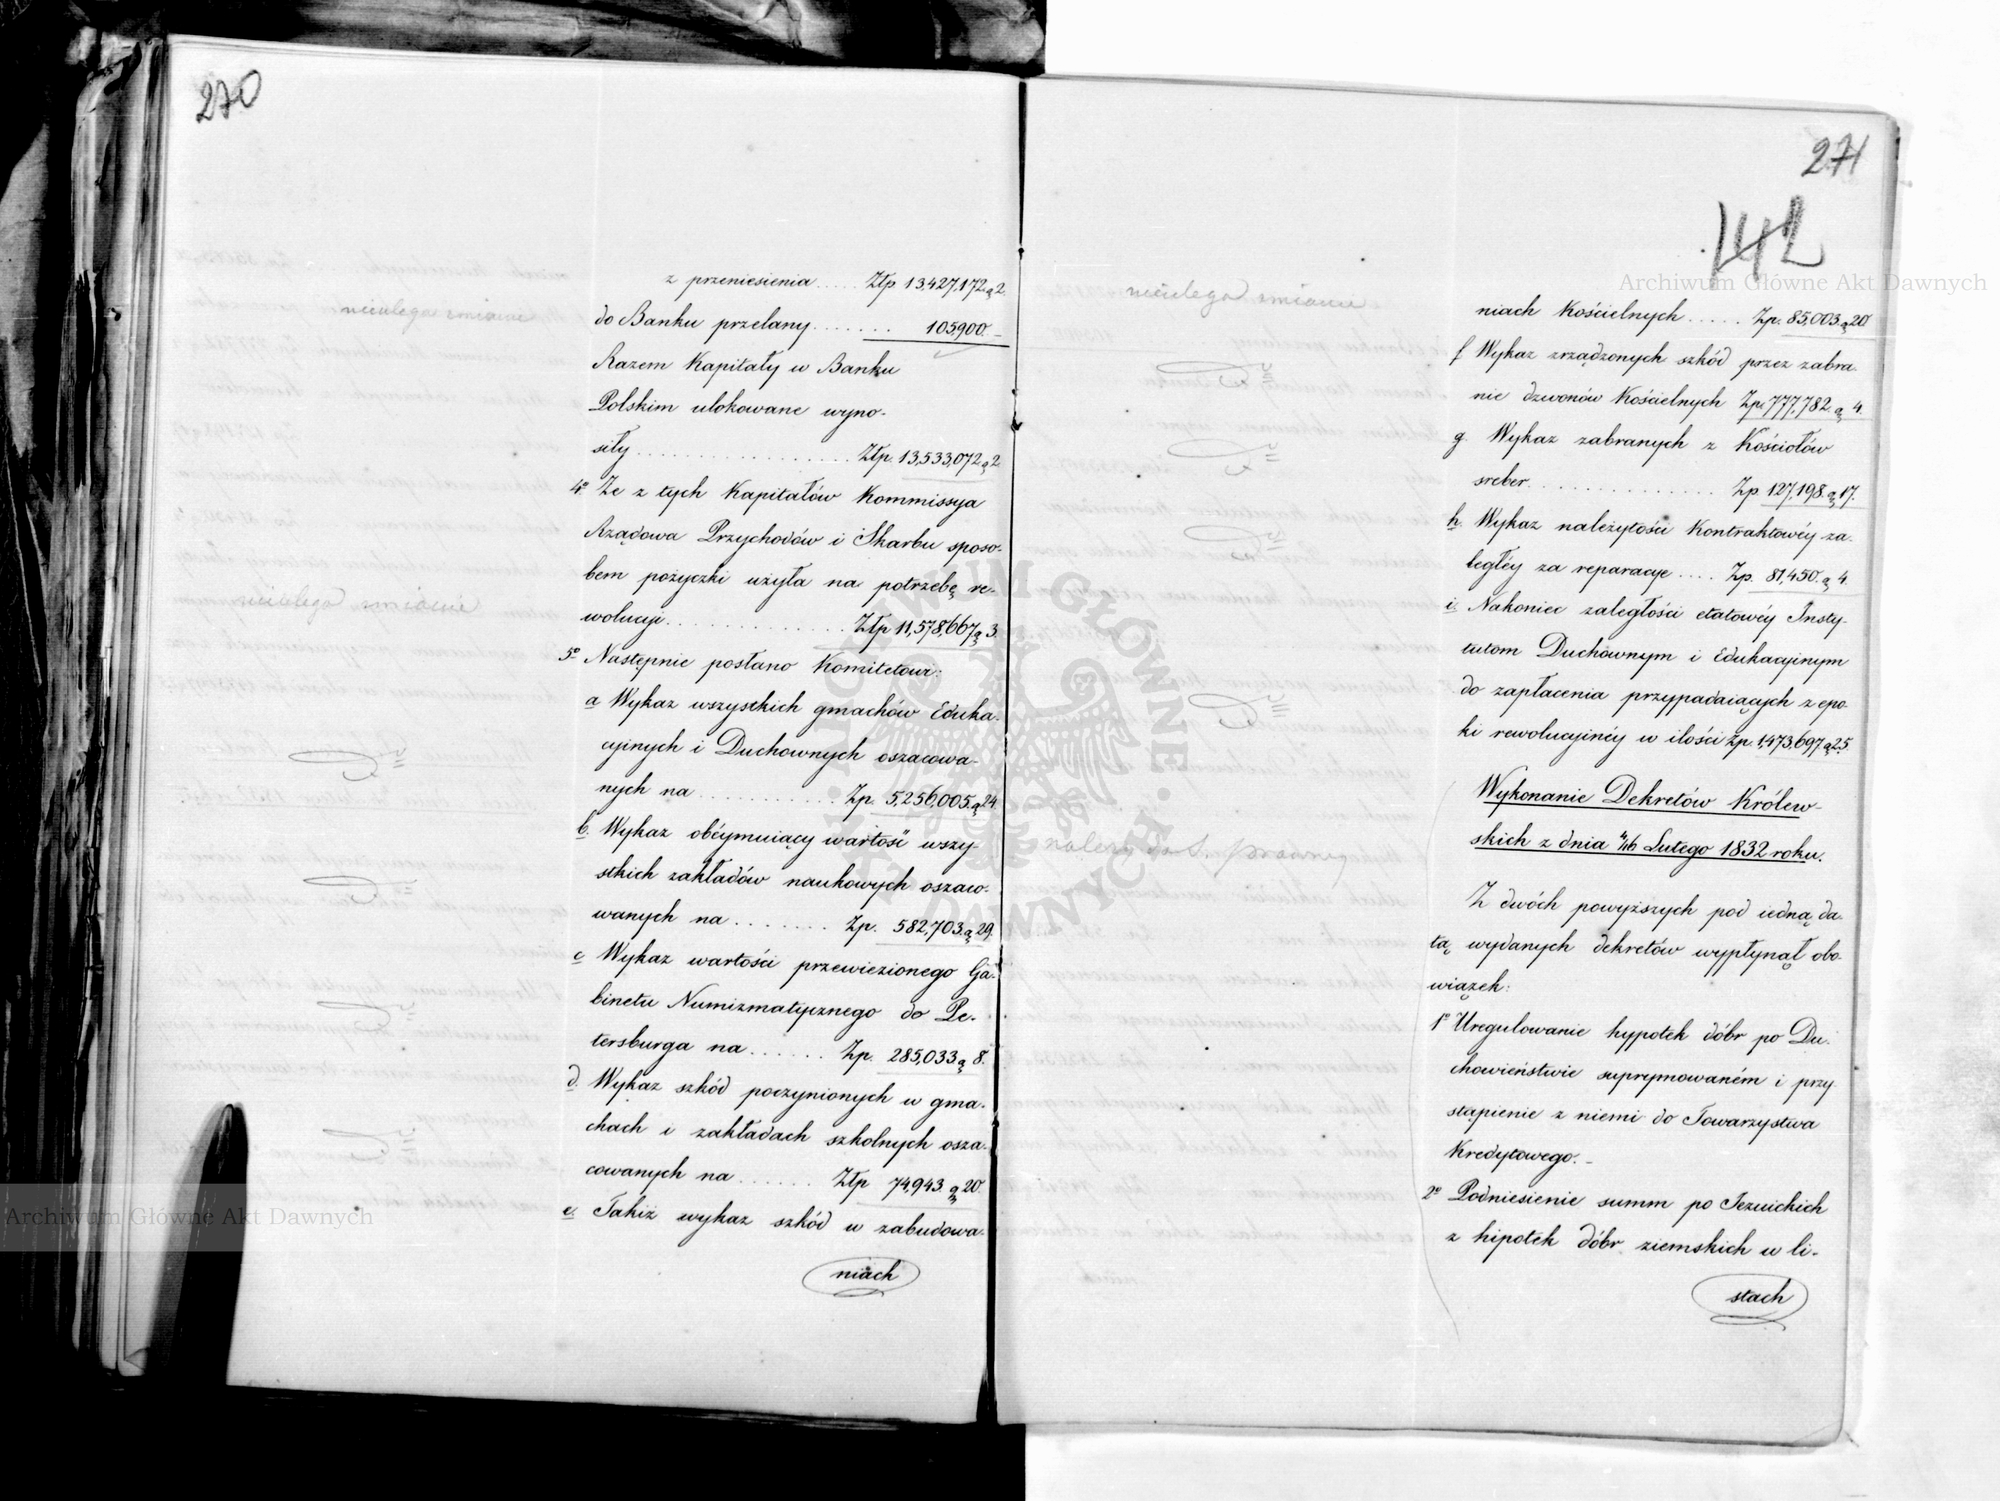 270
z przeniesienia ..... Złp 13,427,172.g 2.
do Banku przelany ....... 105900. –
Razem Kapitały w Banku
Polskim ulokowane wyno-
siły ................. Złp. 13,533,072.g 2
nieulega zmianie
4º Że z tych Kapitałów Kommissya
Rządowa Przychodów i Skarbu sposo-
bem pożyczki użyła na potrzebę re-
wolucji .............. Złp 11,578,667g 3.
nieulega zmianie
5º Następnie posłano Komitetowi:
a Wykaz wszystkich gmachów Eduka-
cyjnych i Duchownych oszacowa-
nych na ........... Zp. 5,256,005.g 24.
b. Wykaz obéymuiący wartość wszy-
stkich zakładów naukowych oszaco-
wanych na ....... Zp. 582,703.g 29.
c Wykaz wartości przewiezionego Ga-
binetu Numizmatycznego do Pe-
tersburga na ...... Zp. 285,033 g 8.
d. Wykaz szkód poczynionych w gma-
chach i zakładach szkolnych osza-
cowanych na ...... Złp 74,943. g 20.
e. Takiż wykaz szkód w zabudowa-
niach
271
142
nieulega zmianie
niach Kościelnych ..... Zp. 85,003.g 20
f Wykaz zrządzonych szkód przez zabra-
nie dzwonów Kościelnych Zp. 777,782. g 4.
g. Wykaz zabranych z Kościołów
sreber .............. Zp. 127,198. g 17.
h. Wykaz należytości Kontraktowéy za-
ległéy za reparacye .... Zp. 81,450. g 4.
i. Nakoniec zaległości etatowéy Insty-
tutom Duchownym i Edukacyinym
do zapłacenia przypadaiących z epo-
ki rewolucyinéy w ilości Zp. 1,473,697 g 25.
Wykonanie Dekretów Królew-
skich z dnia 4/16 Lutego 1832 roku.
należy do S. prawnej
Z dwóch powyższych pod iedną da-
tą wydanych dekretów wypłynął obo-
wiązek:
1º Uregulowanie hypotek dóbr po Du-
chowieństwie supprymowaném i przy-
stąpienie z niemi do Towarzystwa
Kredytowego. –
2º Podniesienie summ po Jezuickich
z hipotek dóbr ziemskich w li-
stach
Archiwum Główne Akt Dawnych
Archiwum Główne Akt Dawnych
ARCHIWUM GŁÓWNE AKT DAWNYCH